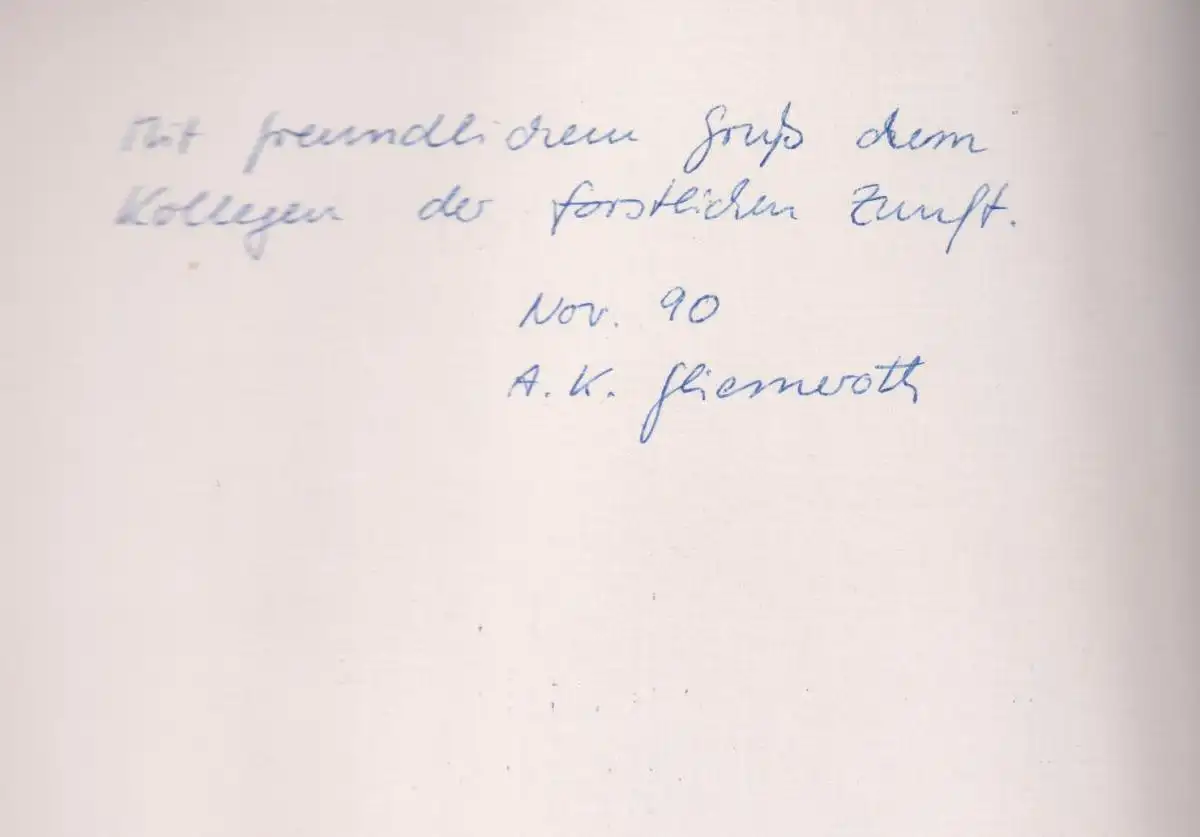 Mit freundlichem Gruß dem
Kollegen der forstlichen Zunft.
Nov. 90
A. K. Gliemeroth